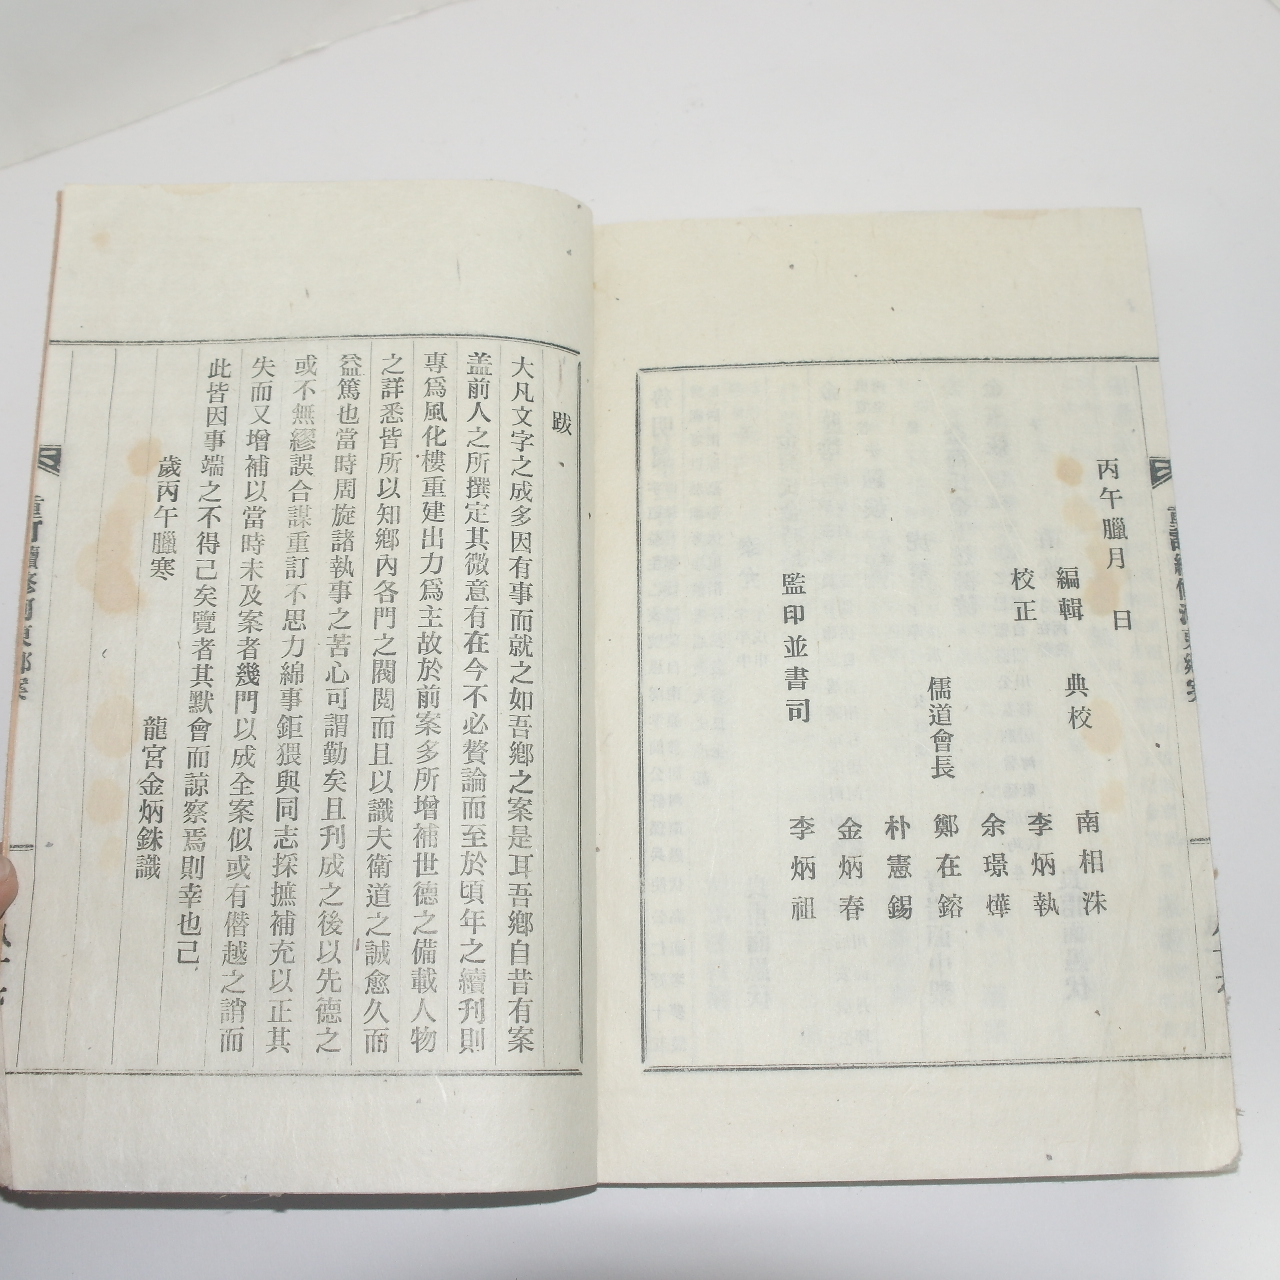 重訂續修河東鄉案
丙午臘月 日
編輯 典校 南相洙
校正 李炳執
余璟燁
儒道會長 鄭在鎔
朴憲錫
金炳春
監印並書司 李炳祖
跋
大凡文字之成多因有事而就之如吾鄉之案是耳吾鄉自昔有案
盖前人之所撰定其微意有在今不必贅論而至於頃年之續刊則
專爲風化樓重建出力爲主故於前案多所增補世德之備載人物
之詳悉皆所以知鄉內各門之閥閱而且以識夫衛道之誠愈久而
益篤也當時周旋諸執事之苦心可謂勤矣且刋成之後以先德之
或不無繆誤合謀重訂不思力綿事鉅猥與同志採摭補充以正其
失而又增補以當時未及案者幾門以成全案似或有僭越之誚而
此皆因事端之不得已矣覽者其默會而諒察焉則幸也已
歲丙午臘寒 龍宮金炳銖識
重訂續修河東鄉案